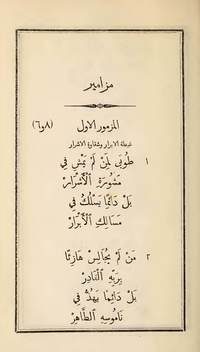 مزامير
المزمور الاول (٨و٦)
غبطة الابرار وشقاوة الاشرار
١ طُوبَى لِمَنْ لَمْ يَمْشِ فِي
مَشُورَةِ ٱلْأَشْرَارْ
بَلْ دَائِمًا يَسْلُكُ فِي
مَسَالِكِ ٱلْأَبْرَارْ
٢ مَنْ لَمْ يُجَالِسْ هَازِئًا
بِرَبِّهِ ٱلْقَادِرْ
بَلْ دَائِمًا يَهُذُّ فِي
نَامُوسِهِ ٱلطَّاهِرْ